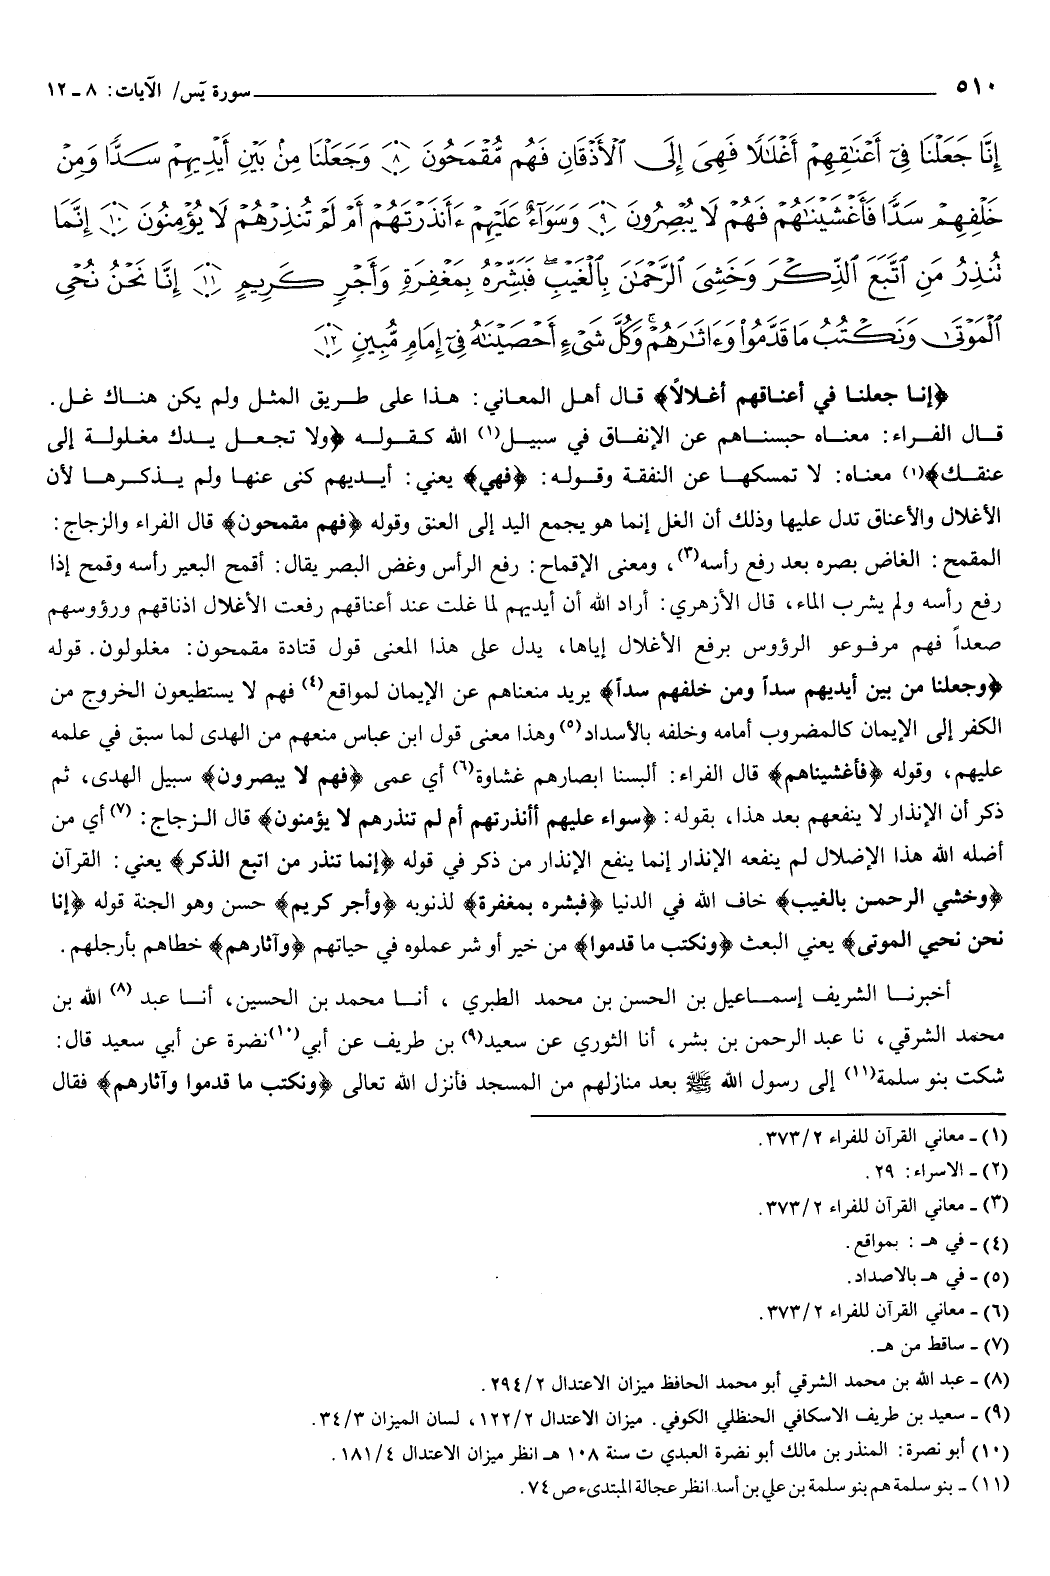 ٥١٠ سورة يٓس/ الآيات: ٨ ـ ١٢
إِنَّا جَعَلْنَا فِىٓ أَعْنَٰقِهِمْ أَغْلَٰلًا فَهِىَ إِلَى ٱلْأَذْقَانِ فَهُم مُّقْمَحُونَ ٨ وَجَعَلْنَا مِنۢ بَيْنِ أَيْدِيهِمْ سَدًّا وَمِنْ
خَلْفِهِمْ سَدًّا فَأَغْشَيْنَٰهُمْ فَهُمْ لَا يُبْصِرُونَ ٩ وَسَوَآءٌ عَلَيْهِمْ ءَأَنذَرْتَهُمْ أَمْ لَمْ تُنذِرْهُمْ لَا يُؤْمِنُونَ ١٠ إِنَّمَا
تُنذِرُ مَنِ ٱتَّبَعَ ٱلذِّكْرَ وَخَشِىَ ٱلرَّحْمَٰنَ بِٱلْغَيْبِ ۖ فَبَشِّرْهُ بِمَغْفِرَةٍ وَأَجْرٍ كَرِيمٍ ١١ إِنَّا نَحْنُ نُحْىِ
ٱلْمَوْتَىٰ وَنَكْتُبُ مَا قَدَّمُوا۟ وَءَاثَٰرَهُمْ ۚ وَكُلَّ شَىْءٍ أَحْصَيْنَٰهُ فِىٓ إِمَامٍ مُّبِينٍ ١٢
﴿إنـا جعلنـا في أعناقهم أغـلالاً﴾ قـال أهـل المعـاني: هـذا على طـريق المثـل ولم يكن هنـاك غـل.
قـال الفـراء: معنـاه حبسنـاهم عن الإنفـاق في سبيـل(١) الله كـقـولـه ﴿ولا تجعـل يـدك مغـلولـة إلى
عنقـك﴾(١) معنـاه: لا تمسكهـا عن النفقـة وقـولـه: ﴿فهي﴾ يعني: أيـديهم كنى عنهـا ولم يـذكـرهـا لأن
الأغلال والأعناق تدل عليها وذلك أن الغل إنما هو يجمع اليد إلى العنق وقوله ﴿فهم مقمحون﴾ قال الفراء والزجاج:
المقمح: الغاض بصره بعد رفع رأسه(٣)، ومعنى الإقماح: رفع الرأس وغض البصر يقال: أقمح البعير رأسه وقمح إذا
رفع رأسه ولم يشرب الماء، قال الأزهري: أراد الله أن أيديهم لما غلت عند أعناقهم رفعت الأغلال اذناقهم ورؤوسهم
صعداً فهم مرفـوعو الرؤوس برفع الأغلال إياها، يدل على هذا المعنى قول قتادة مقمحون: مغلولون. قوله
﴿وجعلنا من بين أيديهم سداً ومن خلفهم سداً﴾ يريد منعناهم عن الإيمان لمواقع(٤) فهم لا يستطيعون الخروج من
الكفر إلى الإيمان كالمضروب أمامه وخلفه بالأسداد(٥) وهذا معنى قول ابن عباس منعهم من الهدى لما سبق في علمه
عليهم، وقوله ﴿فأغشيناهم﴾ قال الفراء: ألبسنا ابصارهم غشاوة(٦) أي عمى ﴿فهم لا يبصرون﴾ سبيل الهدى، ثم
ذكر أن الإنذار لا ينفعهم بعد هذا، بقوله: ﴿سواء عليهم أأنذرتهم أم لم تنذرهم لا يؤمنون﴾ قال الـزجاج: (٧) أي من
أضله الله هذا الإضلال لم ينفعه الإنذار إنما ينفع الإنذار من ذكر في قوله ﴿إنما تنذر من اتبع الذكر﴾ يعني: القرآن
﴿وخشي الرحمـن بالغيب﴾ خاف الله في الدنيا ﴿فبشره بمغفرة﴾ لذنوبه ﴿وأجر كريم﴾ حسن وهو الجنة قوله ﴿إنا
نحن نحيي الموتى﴾ يعني البعث ﴿ونكتب ما قدموا﴾ من خير أو شر عملوه في حياتهم ﴿وآثارهم﴾ خطاهم بأرجلهم.
أخبرنـا الشريف إسمـاعيل بن الحسن بن محمد الطبري ، أنـا محمد بن الحسين، أنـا عبد (٨) الله بن
محمد الشرقي، نا عبد الرحمن بن بشر، أنا الثوري عن سعيد(٩) بن طريف عن أبي(١٠)نضرة عن أبي سعيد قال:
شكت بنو سلمة(١١) إلى رسول الله ﷺ بعد منازلهم من المسجد فأنزل الله تعالى ﴿ونكتب ما قدموا وآثارهم﴾ فقال
(١) ـ معاني القرآن للفراء ٢/ ٣٧٣.
(٢) ـ الاسراء: ٢٩.
(٣) ـ معاني القرآن للفراء ٢/ ٣٧٣.
(٤) ـ في هـ : بمواقع.
(٥) ـ في هـ بالاصداد.
(٦) ـ معاني القرآن للفراء ٢/ ٣٧٣.
(٧) ـ ساقط من هـ.
(٨) ـ عبد الله بن محمد الشرقي أبو محمد الحافظ ميزان الاعتدال ٢/ ٢٩٤.
(٩) ـ سعيد بن طريف الاسكافي الحنظلي الكوفي. ميزان الاعتدال ٢/ ١٢٢، لسان الميزان ٣/ ٣٤.
(١٠) أبو نصرة: المنذر بن مالك أبو نضرة العبدي ت سنة ١٠٨ هـ انظر ميزان الاعتدال ٤/ ١٨١.
(١١) ـ بنو سلمة هم بنو سلمة بن علي بن أسد انظر عجالة المبتدىء ص ٧٤.